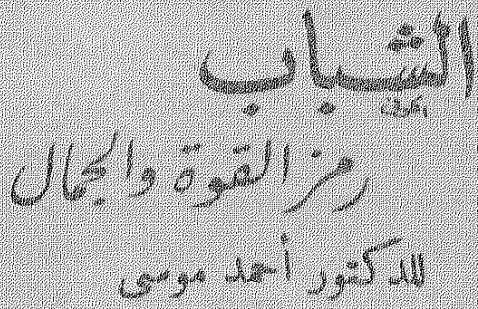 الشباب
رمز القوة والجمال
للدكتور أحمد موسى